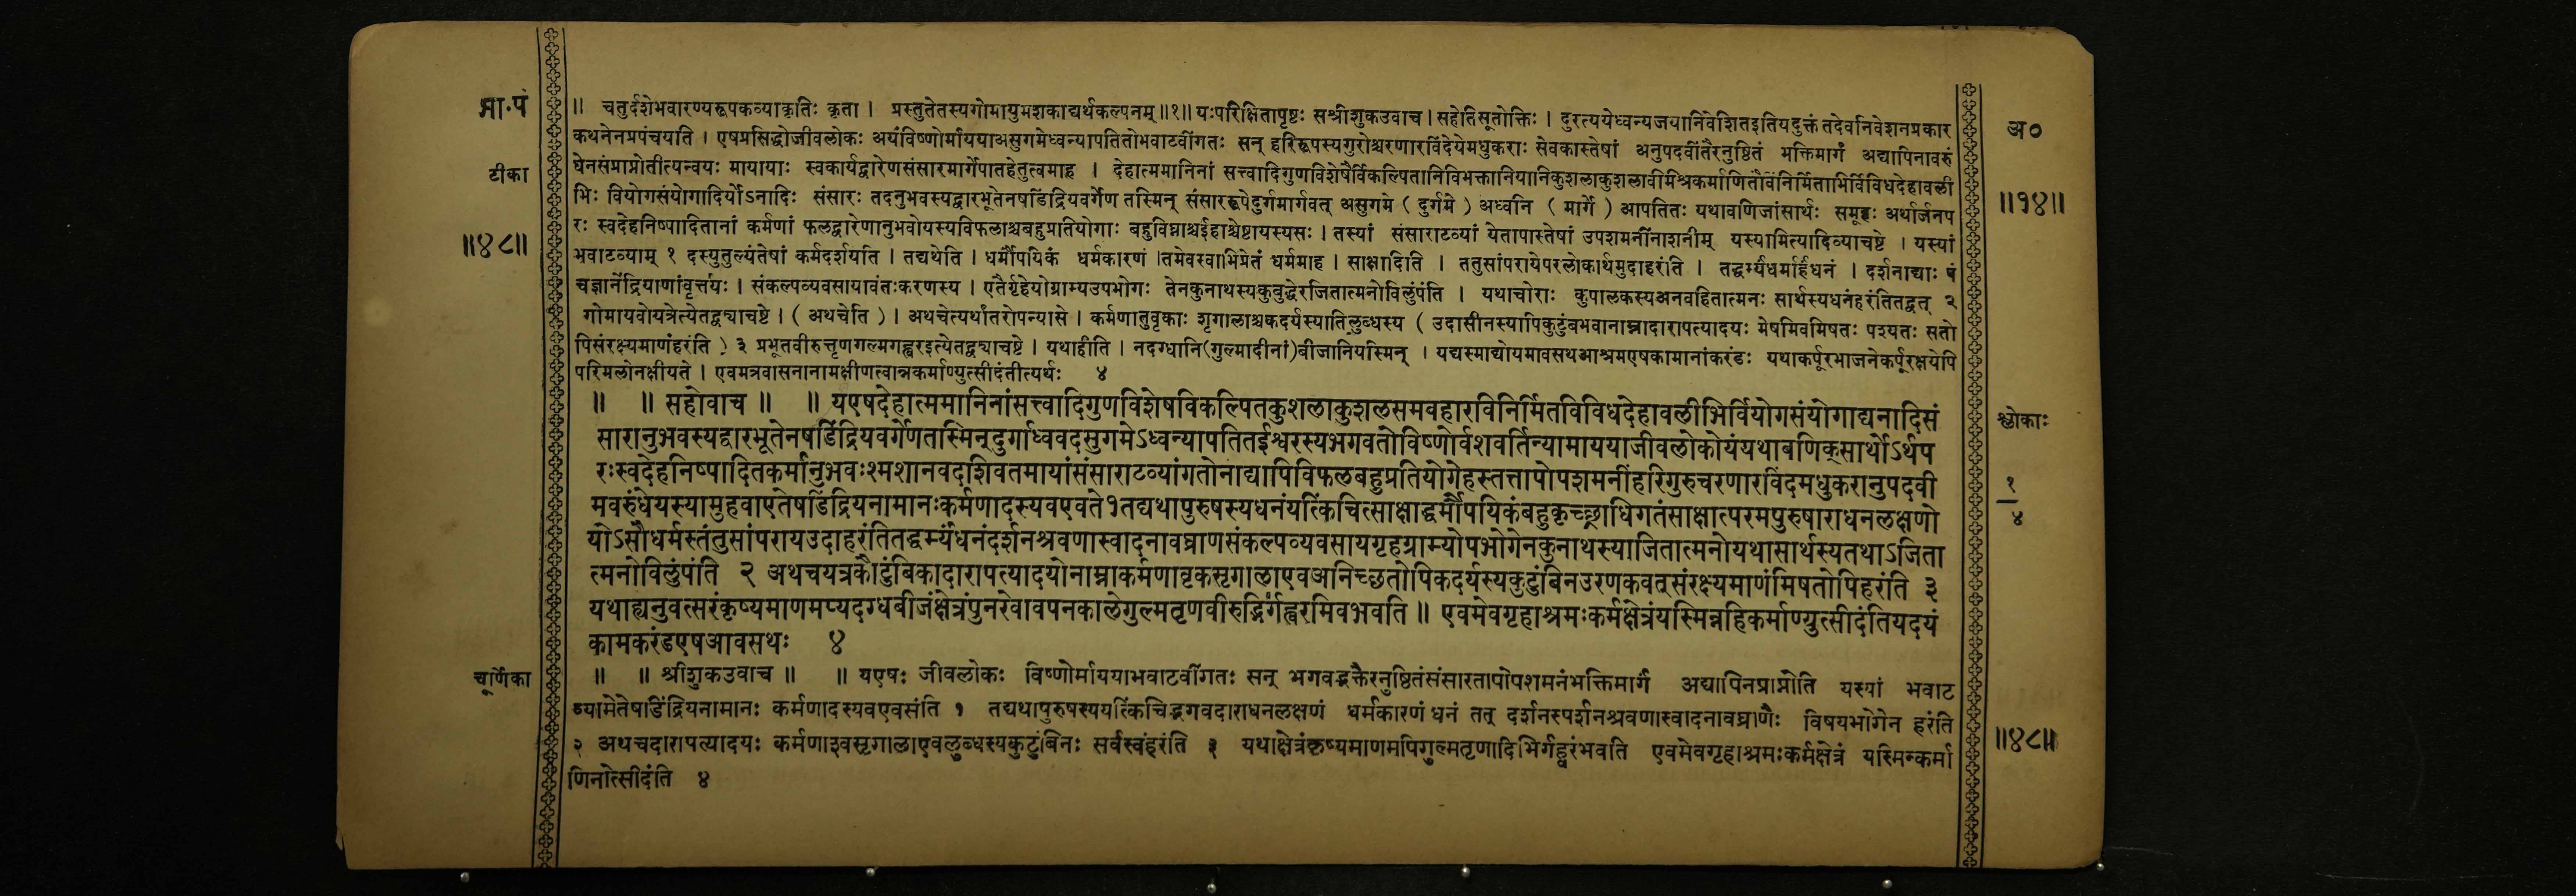 भा.पं
टीका
॥४८॥
॥ चतुर्दशेभवारण्यरूपकव्याकृतिः कृता । प्रस्तुतेतस्यगोमायुमशकाद्यर्थकल्पनम्॥१॥ यःपरिक्षितापृष्टः सश्रीशुकउवाच।सहोतिसूतोक्तिः । दुरत्ययेध्वन्यजयानिवेशितइतियदुक्तं तदेवनिवेशनप्रकार
कथनेनप्रपंचयति । एषप्रसिद्धोजीवलोकः अयंविष्णोर्मायया‌असुगमेध्वन्यापतितोभवाटवींगतः सन् हरिरूपस्यगुरोश्चरणारविंदेयेमधुकराः सेवकास्तेषां अनुपदवींतैरनुष्ठितं भक्तिमार्गं अद्यापिनावरुं
धेनसंप्राप्नोतीत्यन्वयः मायायाः स्वकार्यद्वारेणसंसारमार्गेपातहेतुत्वमाह । देहात्ममानिनां सत्त्वादिगुणविशेषैर्विकल्पितानिविभक्तानियानिकुशलाकुशलावीमिश्रकर्माणितैर्विनिर्मिताभिर्विविधदेहावली
भिः वियोगसंयोगादिर्योऽनादिः संसारः तदनुभवस्यद्वारभूतेनषडिंद्रियवर्गेण तस्मिन् संसाररूपेदुर्गमार्गवत् असुगमे ( दुर्गमे ) अध्वनि ( मार्गे ) आपतितः यथावणिजांसार्थः समूहः अर्थार्जनप
रः स्वदेहनिष्पादितानां कर्मणां फलद्वारेणानुभवोयस्यविफलाश्चबहुप्रतियोगाः बहुविघ्नाश्चईहाश्चेष्टायस्यसः । तस्यां संसाराटव्यां येतापास्तेषां उपशमनींनाशनीम् यस्यामित्यादिव्याचष्टे । यस्यां
भवाटव्याम् १ दस्युतुल्यंतेषां कर्मदर्शयति । तद्यथेति । धर्मौपयिकं धर्मकारणं ।तमेवस्वाभिप्रेतं धर्ममाह । साक्षादिति । ततुसांपरायेपरलोकार्थमुदाहरंति । तद्धर्म्यंधर्मार्हंधनं । दर्शनाद्याः पं
चज्ञानेंद्रियाणांवृत्तयः । संकल्पव्यवसायावंतःकरणस्य । एतैर्गृहेयोग्राम्यउपभोगः तेनकुनाथस्यकुबुद्धेरजितात्मनोविलुंपंति । यथाचोराः कुपालकस्यअनवहितात्मनः सार्थस्यधनंहरंतितद्वत् २
गोमायवोयत्रेत्येतद्व्याचष्टे । ( अथचेति ) । अथचेत्यर्थांतरोपन्यासे । कर्मणातुवृकाः शृगालाश्चकदर्यस्यातिलुब्धस्य ( उदासीनस्यापिकुटुंबभवानाम्नादारापत्यादयः मेषमिवमिषतः पश्यतः सतो
पिसंरक्ष्यमाणंहरंति ) ३ प्रभूतवीरुत्तृणगल्मगह्वरइत्येतद्व्याचष्टे । यथाहीति । नदग्धानि(गुल्मादीनां)बीजानियस्मिन् । यद्यस्माद्योयमावसथआश्रमएषकामानांकरंडः यथाकर्पूरभाजनेकर्पूरक्षयेपि
परिमलोनक्षीयते । एवमत्रवासनानामक्षीणत्वान्नकर्माण्युत्सीदंतीत्यर्थः ४
॥ ॥ सहोवाच ॥ ॥ यएषदेहात्ममानिनांसत्त्वादिगुणविशेषविकल्पितकुशलाकुशलसमवहारविनिर्मितविविधदेहावलीभिर्वियोगसंयोगाद्यनादिसं
सारानुभवस्यद्वारभूतेनषडिंद्रियवर्गेणतस्मिन्दुर्गाध्ववदसुगमेऽध्वन्यापतितईश्वरस्यभगवतोविष्णोर्वशवर्तिन्यामाययाजीवलोकोयंयथाबणिक्सार्थोऽर्थप
रःस्वदेहनिष्पादितकर्मानुभवःश्मशानवदशिवतमायांसंसाराटव्यांगतोनाद्यापिविफलबहुप्रतियोगेहस्तत्तापोपशमनींहरिगुरुचरणारविंदमधुकरानुपदवी
मवरुंधेयस्यामुहवाएतेषडिंद्रियनामानःकर्मणादस्यवएवते१तद्यथापुरुषस्यधनंयत्किंचित्साक्षाद्धर्मौपयिकंबहुकृच्छ्राधिगतंसाक्षात्परमपुरुषाराधनलक्षणो
योऽसौधर्मस्तंतुसांपरायउदाहरंतितद्धर्म्यंधनंदर्शनश्रवणास्वादनावघ्राणसंकल्पव्यवसायगृहग्राम्योपभोगेनकुनाथस्याजितात्मनोयथासार्थस्यतथाऽजिता
त्मनोविलुंपंति २ अथचयत्रकौटुंबिकादारापत्यादयोनाम्नाकर्मणावृकसृगालाएवअनिच्छतोपिकदर्यस्यकुटुंबिनउरणकवत्संरक्ष्यमाणंमिषतोपिहरंति ३
यथाह्यनुवत्सरंकृष्यमाणमप्यदग्धबीजंक्षेत्रंपुनरेवावपनकालेगुल्मतृणवीरुद्भिर्गह्वरमिवभवति ॥ एवमेवगृहाश्रमःकर्मक्षेत्रंयस्मिन्नहिकर्माण्युत्सीदंतियदयं
कामकरंडएषआवसथः ४
चूर्णिका
॥ ॥ श्रीशुकउवाच ॥ ॥ यएषः जीवलोकः विष्णोर्माययाभवाटवींगतः सन् भगवद्भक्तैरनुष्ठितंसंसारतापोपशमनंभक्तिमार्गं अद्यापिनप्राप्नोति यस्यां भवाट
व्यामेतेषडिंद्रियनामानः कर्मणादस्यवएवसंति १ तद्यथापुरुषस्ययत्किंचिद्भगवदाराधनलक्षणं धर्मकारणं धनं तत् दर्शनस्पर्शनश्रवणास्वादनावघ्राणैः विषयभोगेन हरंति
२ अथचदारापत्यादयः कर्मणा३वसृगालाएवलुब्धस्यकुटुंबिनः सर्वस्वंहरंति ३ यथाक्षेत्रंकृष्यमाणमपिगुल्मतृणादिभिर्गह्वरंभवति एवमेवगृहाश्रमःकर्मक्षेत्रं यस्मिन्कर्मा
णिनोत्सीदंति ४
अ०
॥१४॥
श्लोकाः
१
४
॥४८॥